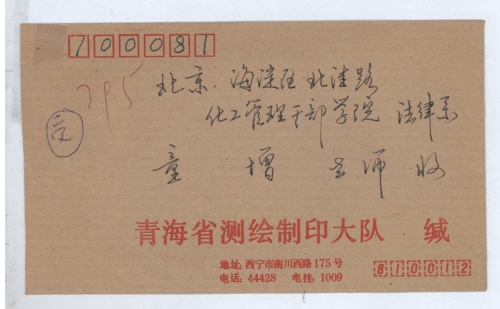 100081
795
北京.海淀区北洼路
化工管理干部学院 法律系
受
童 增 老师 收
青海省测绘制印大队 缄
地址:西宁市南川西路175号
电话:44428 电挂:1009
810012